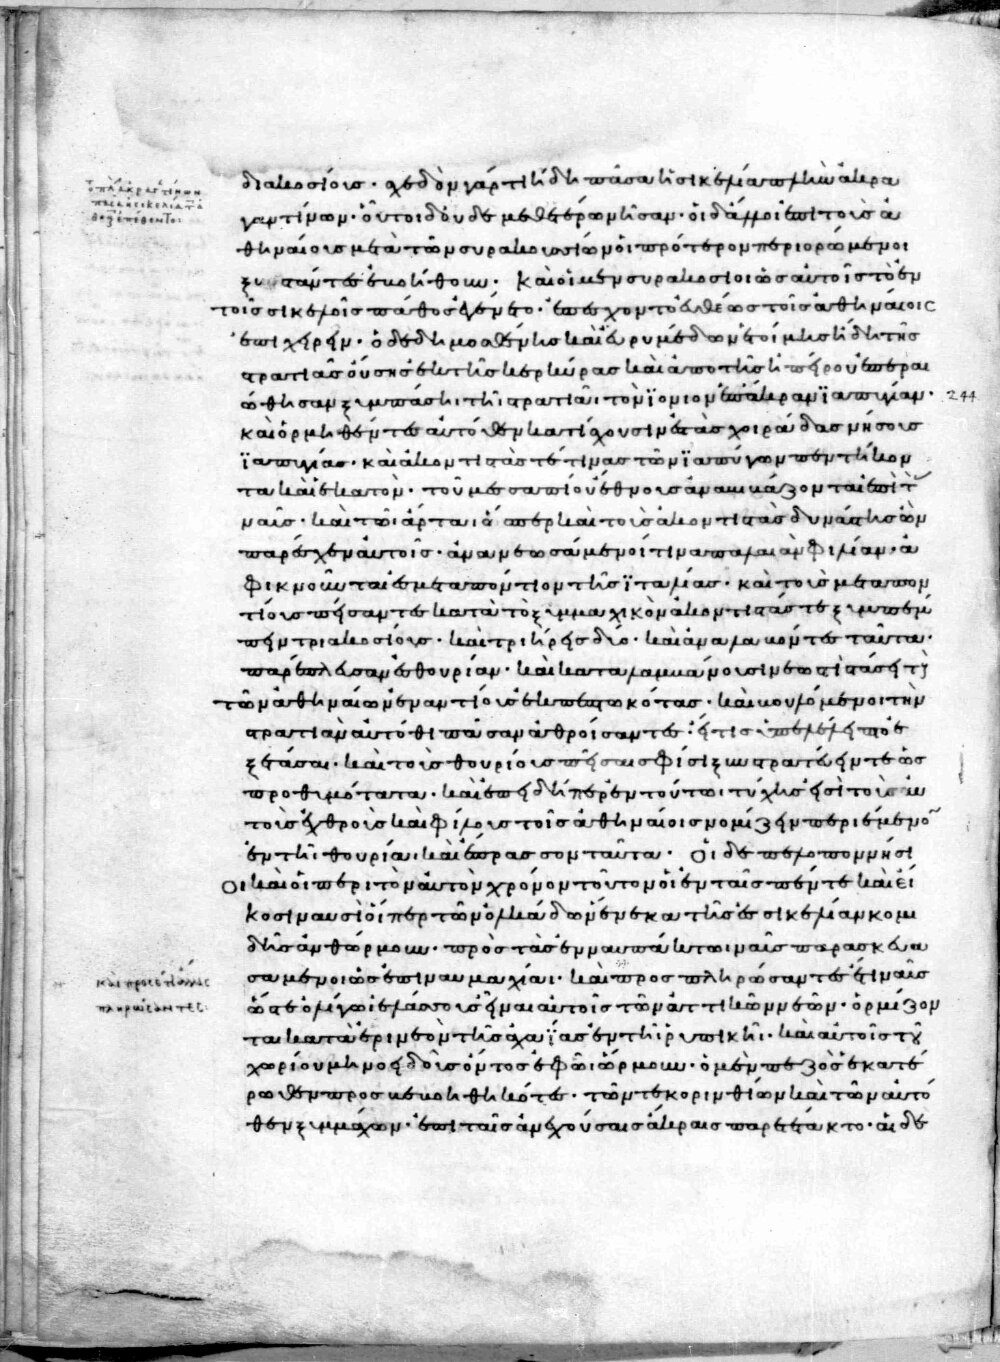 ὅτι πλ ἀκραγαντίνων
πᾶσα ἡ σικελία μετὰ
διακοσίοις· σχεδὸν γάρ τι ἤδη πᾶσα ἡ σικελία πλὴν ἀκρα
γαντίνων· οὗτοι δ' οὐδὲ μεθ' ἑτέρων ἦσαν· οἱ δ' ἄλλοι ἐπὶ τοὺς ἀ
θηναίους μετὰ τῶν συρακοσίων οἱ πρότερον περιορώμενοι
ξυστάντες ἐβοήθουν· καὶ οἱ μὲν συρακόσιοι ὡς αὐτοῖς τὸ ἐν
τοῖς σικελοῖς πάθος ἐγένετο· ἐπέσχον τὸ εὐθέως τοῖς ἀθηναίοις
ἐπιχειρεῖν· ὁ δὲ δημοσθένης καὶ εὐρυμέδων ἑτοίμης ἤδη τῆς
στρατιᾶς οὔσης ἔκ τε τῆς κερκύρας καὶ ἀπὸ τῆς ἠπείρου ἐπεραι
ώθησαν ξυμπάσῃ τῇ στρατιᾷ τὸν ἰόνιον ἐπ' ἄκραν ἰαπυγίαν· 244
καὶ ὁρμηθέντες αὐτόθεν κατίσχουσιν ἐς τὰς χοιράδας νήσους
ἰαπυγίας· καὶ ἀκοντιστάς τέ τινας τῶν ἰαπύγων πεντήκον
τα καὶ ἑκατὸν· τοῦ μεσσαπίου ἔθνους ἀναβιβάζονται ἐπὶ τὰς
ναῦς· καὶ τῷ ἄρτᾳ ὅσπερ καὶ τοὺς ἀκοντιστὰς δυνάστης ὢν
παρέσχεν αὐτοῖς· ἀνανεωσάμενοί τινα παλαιὰν φιλίαν· ἀ
φικνοῦνται ἐς μεταπόντιον τῆς ἰταλίας· καὶ τοὺς μεταπον
τίους πείσαντες κατὰ τὸ ξυμμαχικὸν ἀκοντιστάς τε ξυμπέμ
πειν τριακοσίους· καὶ τριήρεις δύο· καὶ ἀναλαβόντες ταῦτα·
παρέπλευσαν ἐς θουρίαν· καὶ καταλαμβάνουσι νεωστὶ στάσει τοὺς
τῶν ἀθηναίων ἐναντίους ἐκπεπτωκότας· καὶ βουλόμενοι τὴν
στρατιὰν αὐτόθι πᾶσαν ἀθροίσαντες εἴ τις ὑπελέλειπτο ἐ
ξετάσαι· καὶ τοὺς θουρίους πεῖσαι σφίσι ξυστρατεύειν τε ὡς
προθυμότατα· καὶ ἐπειδήπερ ἐν τούτῳ τύχης εἰσὶ τοὺς αὐ
τοὺς ἐχθροὺς καὶ φίλους τοῖς ἀθηναίοις νομίζειν περιέμενον
ἐν τῇ θουρίᾳ καὶ ἔπρασσον ταῦτα· Οἱ δὲ πελοποννήσι
οι καὶ οἱ περὶ τὸν αὐτὸν χρόνον τοῦτον οἱ ἐν ταῖς πέντε καὶ εἴ
κοσι ναυσὶ οἵπερ τῶν ὁλκάδων ἕνεκα τῆς ἐς σικελίαν κομι
δῆς ἀνθώρμουν· πρὸς τὰς ἐν ναυπάκτῳ ναῦς παρασκευα
σάμενοι ὡς ἐπὶ ναυμαχίᾳ· καὶ προσπληρώσαντες ἔτι ναῦς
ὥστε ὀλίγῳ ἐλάσσους εἶναι αὐτοῖς τῶν ἀττικῶν νεῶν· ὁρμίζον
ται κατὰ ἐρινεὸν τῆς ἀχαΐας ἐν τῇ ῥυπικῇ· καὶ αὐτοῖς τοῦ
χωρίου μηνοειδοῦς ὄντος ἐφ' ᾧ ὥρμουν· ὁ μὲν πεζὸς ἑκατέ
ρωθεν προσβεβοηθηκότες· τῶν τε κορινθίων καὶ τῶν αὐτό
θεν ξυμμάχων· ἐπὶ ταῖς ἀνεχούσαις ἄκραις παρετέτακτο· αἱ δὲ
πληρώσαντες